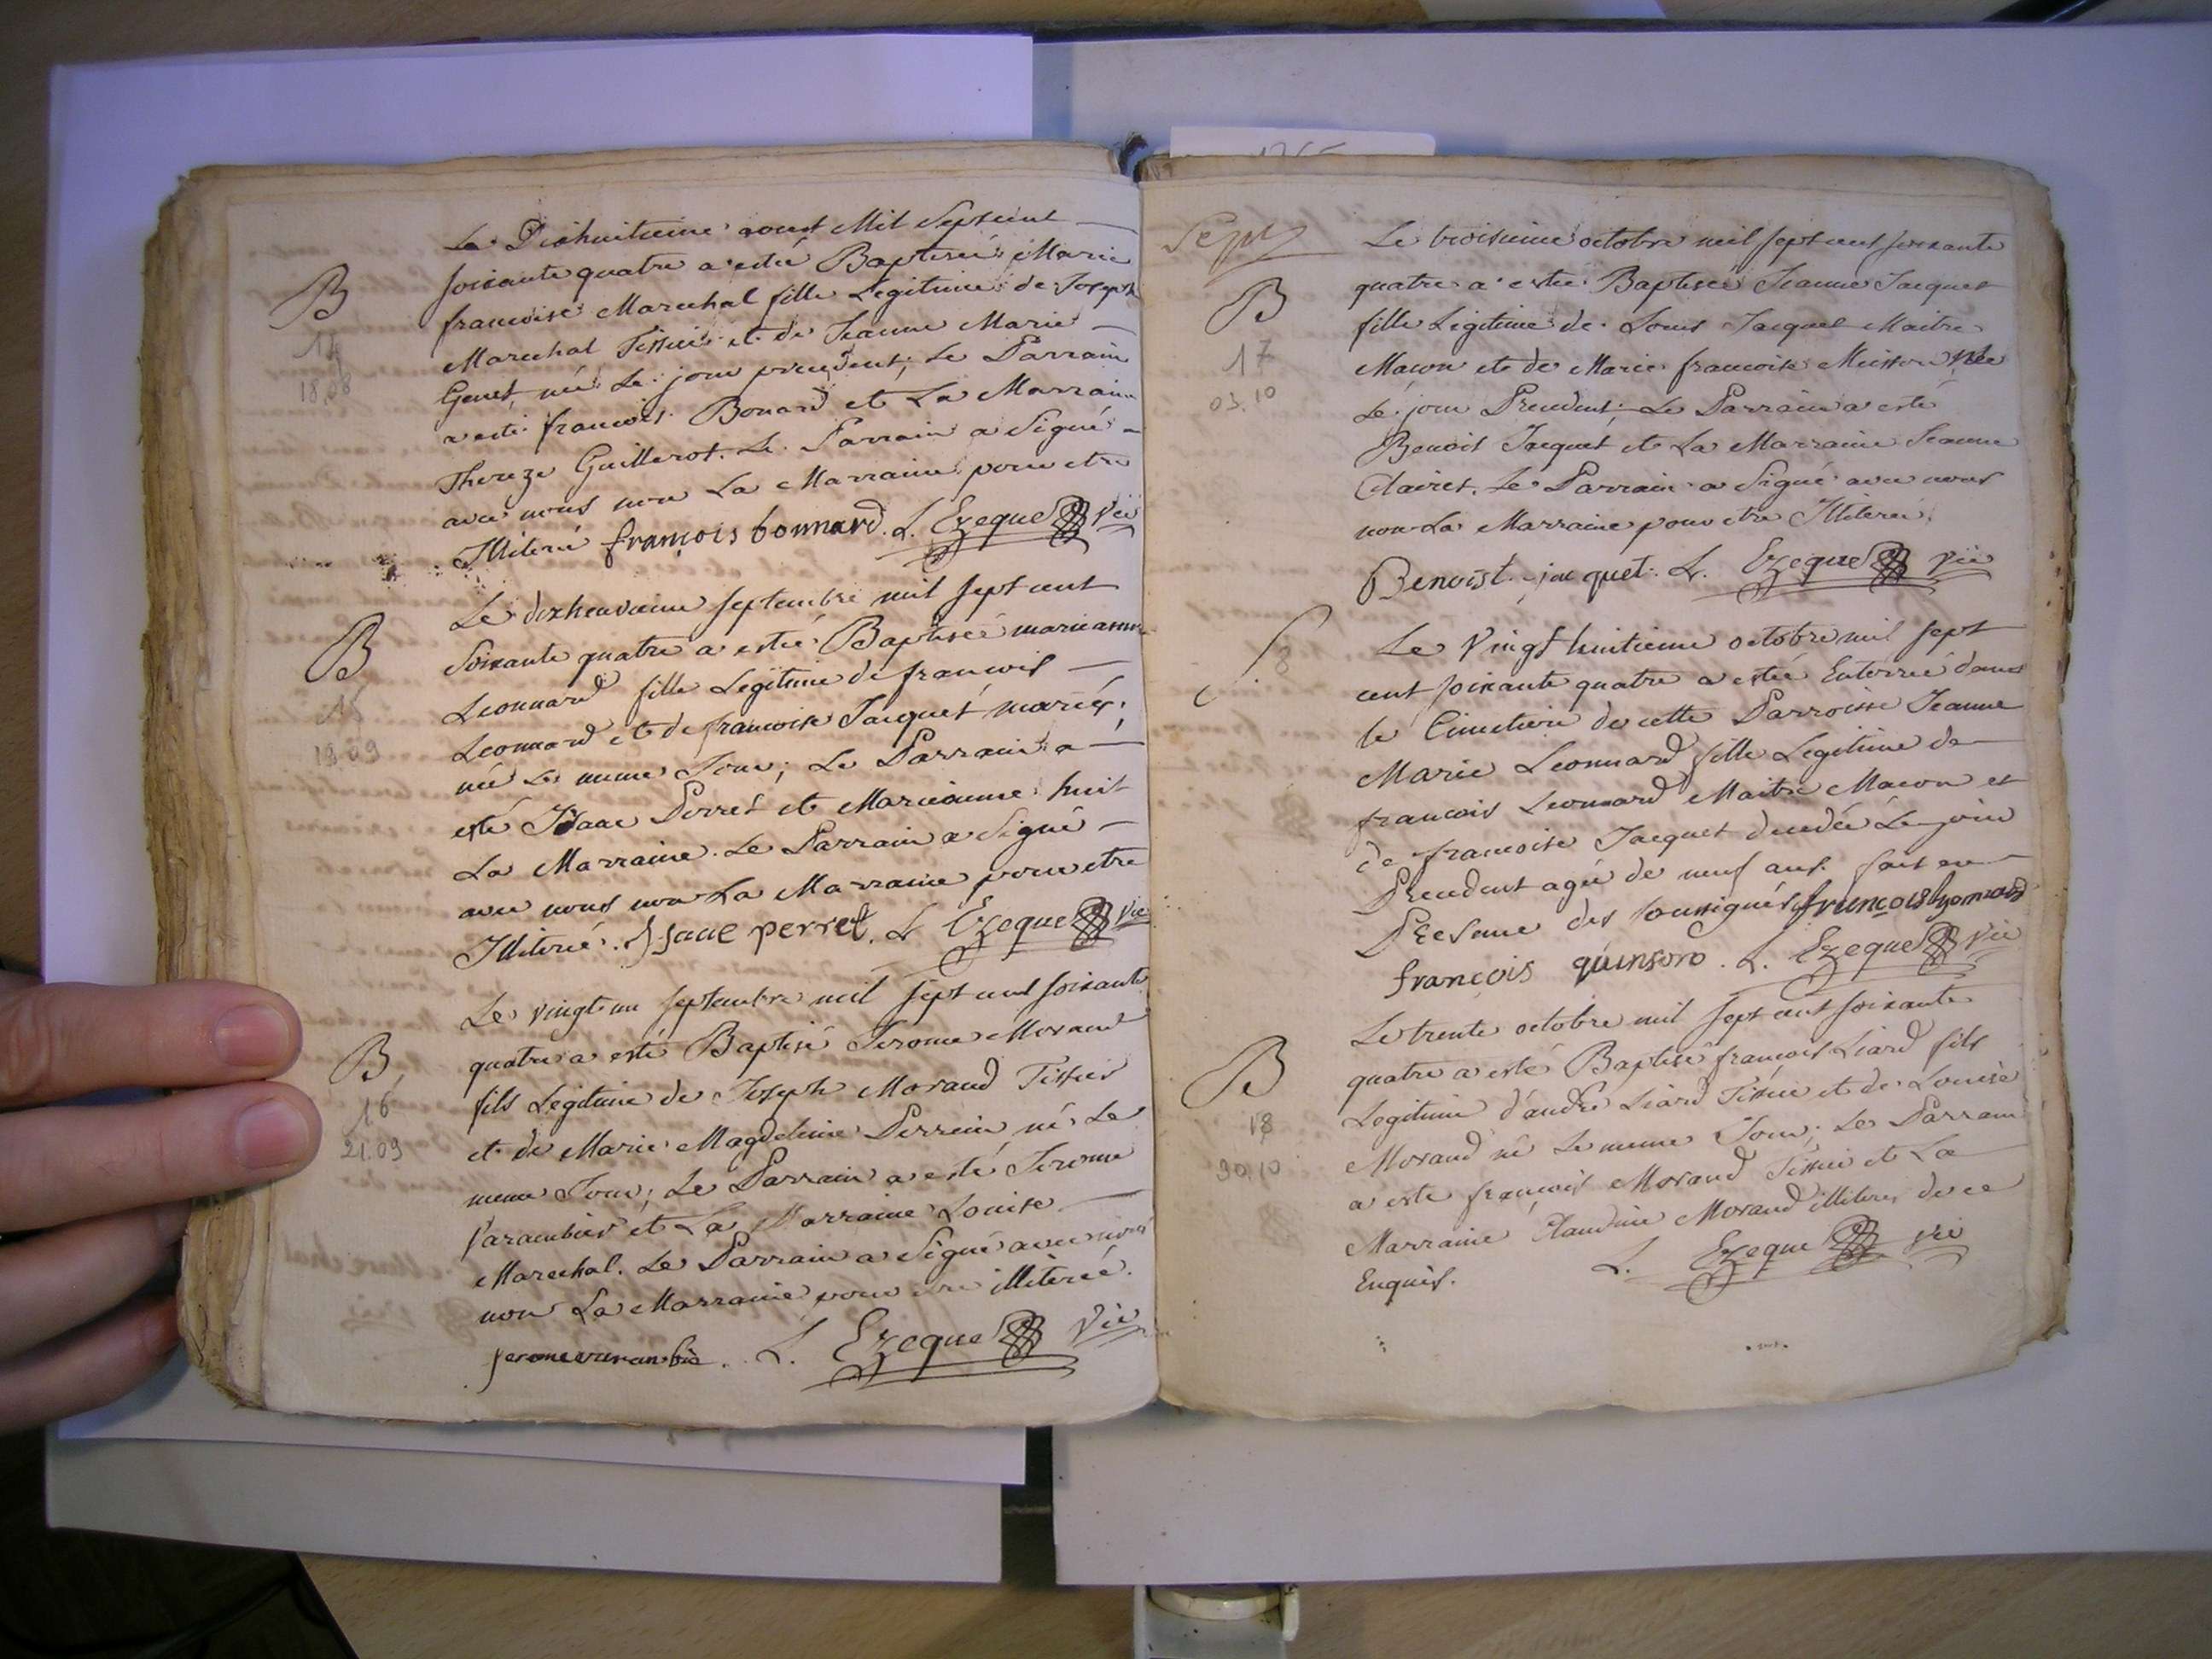 Le Dixhuitieme aoust Mil Septcent
B
soixante quatre a estée Baptisée Marie
francoise Marechal fille Legitime de Joseph
14
Marechal Tissier et de Jeanne Marie
18.08
Genet, née Le jour precedent; Le Parrain
a esté francois Bonard et La Marraine
Thereze Guillerot. Le Parrain a Signé
avec nous non La Marraine pour etre
Illiterée françois bonnard. L. Ezeque Vic
Le dixheuvieme septembre mil sept cent
B
Soixante quatre a estée Baptisée marieanne
15
Leonnard fille Legitime de francois
19.09
Leonnard et de francoise Jacquet mariés,
née Le meme Jour; Le Parrain a
esté Isaac Perret et Marieanne huit
La Marraine. Le Parrain a Signé
avec nous non La Marraine pour etre
Illiterée. Isaac perret. L Ezeque Vic
Le vingt un septembre mil sept cent soixante
B
quatre a esté Baptisé Jerome Morand
16
fils Legitime de Joseph Morand Tissier
21.09
et de Marie Magdeleine Perrein né Le
meme Jour; Le Parrain a esté Jerome
Varambier et La Marraine Louise
Marechal. Le Parrain a Signé avec nous
non La Marraine pour etre illiterée.
jerome varanbié. L. Ezeque Vic
Sept
Le troisieme octobre mil sept cent soixante
B
quatre a estée Baptisée Jeanne Jacquet
17
fille Legitime de Louis Jacquet Maitre
03.10
Macon et de Marie francoise Meisson née
Le jour Precedent; Le Parrain a esté
Benoit Jacquet et La Marraine Jeanne
Clairet. Le Parrain a Signé avec nous
non La Marraine pour etre Illiterée.
Benoist jacquet. L. Ezeque Vic
S 8
Le Vingt huitieme octobre mil sept
cent soixante quatre a estée Enterrée dans
le Cimetiere de cette Parroisse Jeanne
Marie Leonnard fille Legitime de
francois Leonnard Maitre Macon et
de francoise Jacquet decedée Le jour
Precedent agée de neuf ans. fait en
Presence des soussignés françois lyonnard
françois quinsoro. L. Ezeque Vic
Le trente octobre mil sept cent soixante
B
quatre a esté Baptisé françois Liard fils
18
Legitime d'andré Liard Tissier et de Louise
30.10
Morand né Le meme Jour; Le Parrain
a esté françois Morand Tissier et La
Marraine Claudine Morand illiterés de ce
Enquis. L. Ezeque Vic